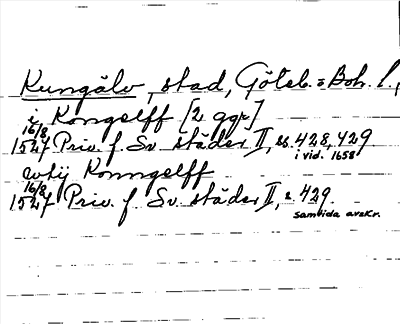 Kungälv, stad, Göteb. o Boh. l.,
i Kongelff [2 ggr]
16/8 1547 Priv. f. Sv. städer II, ss. 428, 429
i vid. 1658
uthj Konngelff
16/8 1547 Priv. f. Sv. städer II, s. 429.
samtida avskr.